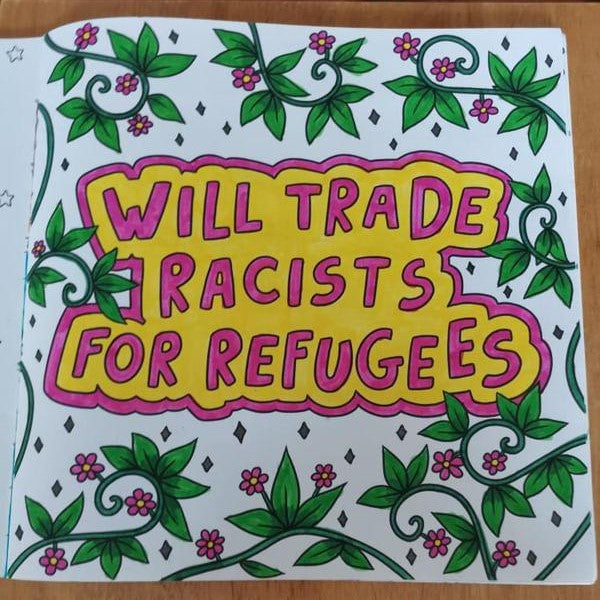 WILL TRADE
RACISTS
FOR REFUGEES